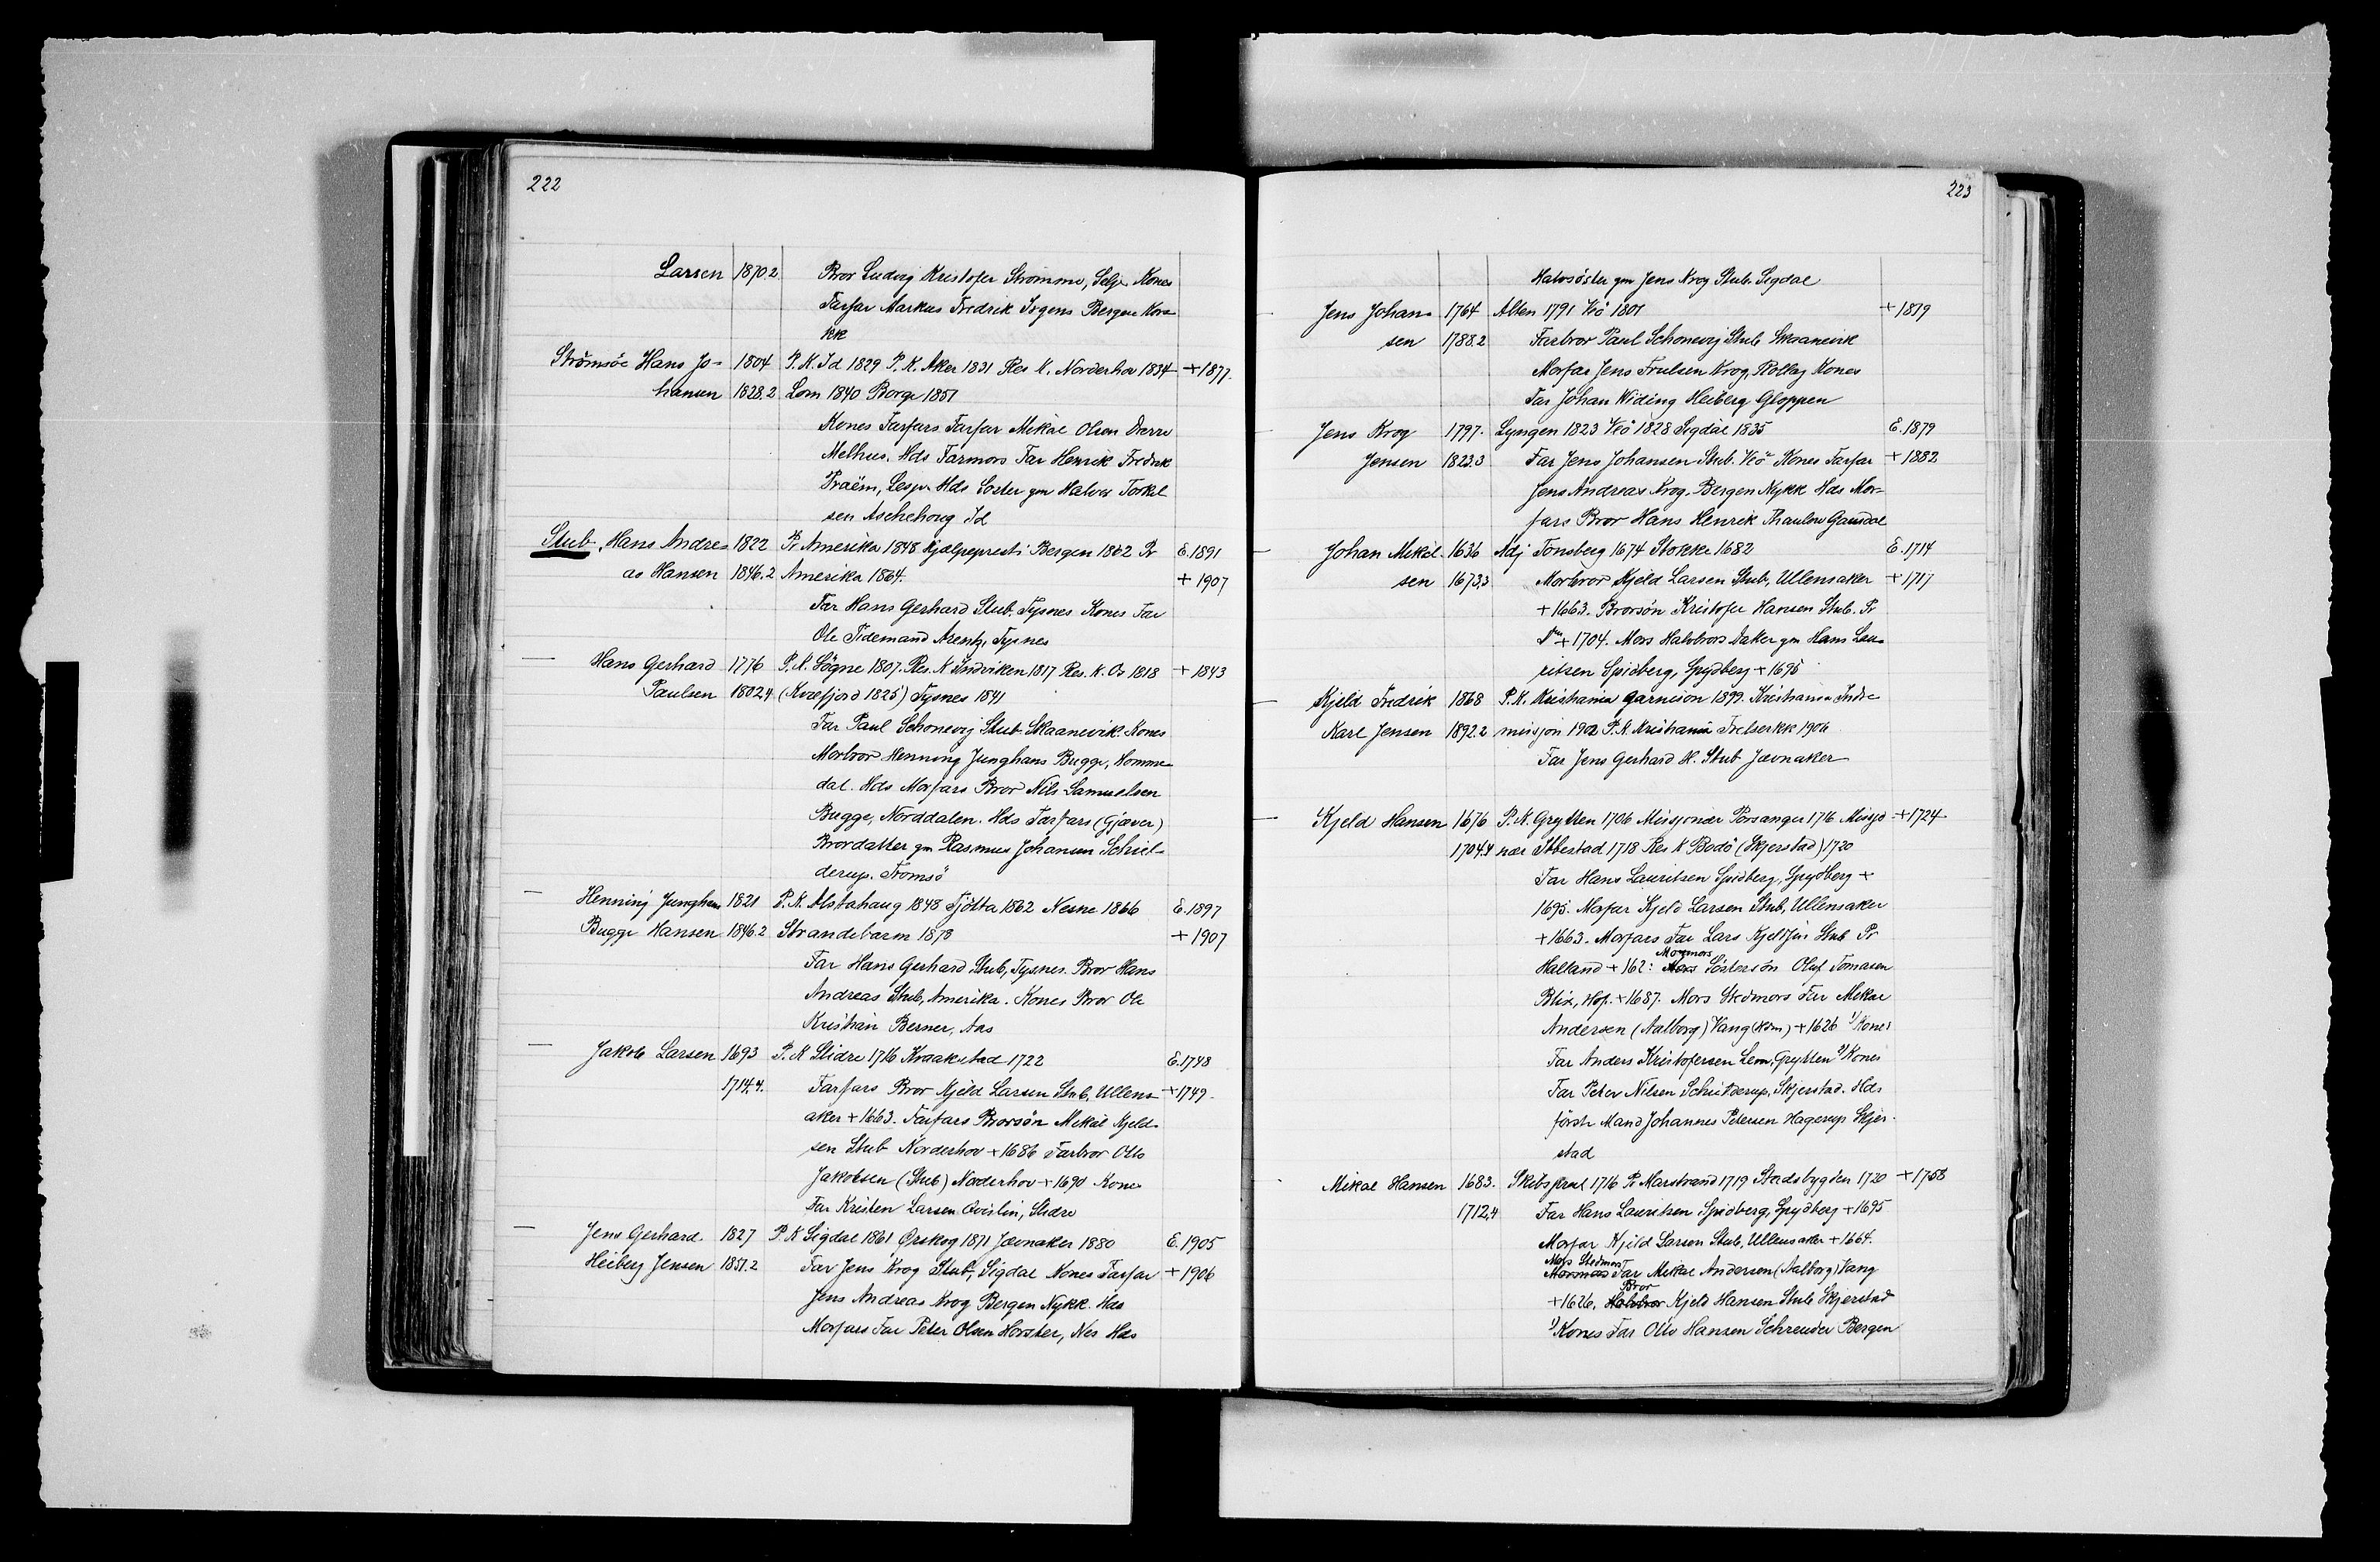 222
Larsen 1870.2 Bror Ludvig Kristofer Strömme, Selje Kones
Farfar Markus Fredrik Irgens Bergen Kors
kk
Strömsöe Hans Jo- 1804 P. K. Id 1829 P. K. Aker 1831 Res K. Norderhov 1834 +1877
hansen 1828.2 Lom 1840 Borge 1851
Kones Farfars Farfar Mikal Olsen Darre
Melhus. Hds Farmors Far Henrik Fredrik
Fraëm, Lesje. Hds Söster gm Halvor Torkel
sen Aschehoug Id
Stub, Hans Andre- 1822 Pr Amerika 1848 Hjælpeprest i Bergen 1862 Pr E.1891
as Hansen 1846.2 Amerika 1864. + 1907
Far Hans Gerhard Stub, Tysnes Kones Far
Ole Tidemand Arentz, Tysnes
— Hans Gerhard 1776 P. K. Sögne 1807. Res. K Indviken 1817 Res. K. Os 1818 + 1843
Paulsen 1802.4 (Kvæfjord 1825) Tysnes 1841
Far Paul Schonevig Stub Skaanevik. Kones
Morbror Henning Junghans Bugge, Homme-
dal. Hds Morfars Bror Nils Samuelsen
Bugge, Norddalen. Hds Farfars (Gjæver)
Brordatter gm Rasmus Johansen Schiel-
derup. Tromsö
— Henning Junghans 1821 P. K. Alstahaug 1848 Tjötta 1862 Nesne 1866 E.1897
Bugge Hansen 1846.2 Strandebarm 1878 + 1907
Far Hans Gerhard Stub, Tysnes. Bror Hans
Andreas Stub, Amerika. Kones Bror Ole
Kristian Berner, Aas
— Jakob Larsen 1693 P. K Slidre 1716 Kraakstad 1722 E.1748
1714.4. Farfars Bror Kjeld Larsen Stub, Ullens +1749
aker +1663. Farfars Brorsön Mikal Kjeld-
sen Stub Norderhov +1686 Farbror Otto
Jakobsen (Stub) Norderhov +1690 Kones
Far Kristen Larsen Qvislin, Slidre
— Jens Gerhard. 1827 P. K Sigdal 1861 Ørskog 1871 Jævnaker 1880 E.1905
Heiberg Jensen 1851.2 Far Jens Krog Stub, Sigdal Kones Farfar + 1906
Jens Andreas Krog Bergen Nykk. Hds
Morfars Far Peter Olsen Horster, Nes Hds
223
Halvsöster gm Jens Krog Stub. Sigdal
— Jens Johan- 1764 Alten 1791 Veö 1801 +1819
sen 1788.2 Farbror Paul Schonevig Stub Skaanevik
Morfar Jens Trulsen Krog, Rollag Kones
Far Johan Widing Heiberg Gloppen
— Jens Krog 1797. Lyngen 1823 Veö 1828 Sigdal 1835 E.1879
Jensen 1823.3 Far Jens Johansen Stub. Veö Kones Farfar + 1882
Jens Andreas Krog, Bergen Nykk Hds Mor-
fars Bror Hans Henrik Thaulow Gausdal
— Johan Mikel- 1636 Adj Tonsberg 1674 Stokke 1682 E.1714
sen 1673.3 Morbror Kjeld Larsen Stub, Ullensaker +1717
+1663. Brorsön Kristofer Hansen Stub. Pr
+1704. Mors Halvbrors Datter gm Hans Lau-
ritsen Spidberg, Spydberg +1695
— Kjeld Fredrik 1868 P. K. Kristiania Garnison 1899. Kristiania Indre-
Karl Jensen 1892.2 misjon 1902 P. K. Kristiania Frelserkk 1906
Far Jens Gerhard H. Stub Jævnaker
— Kjeld Hansen 1676 P. K. Grytten 1706 Missjonær Porsanger 1716 Missjo +1724
1704.4 nær Ibbestad 1718 Res K Bodö (Skjerstad) 1720
Far Hans Lauritsen Spidberg, Spydberg +
1695. Morfar Kjeld Larsen Stub, Ullensaker
+1663. Morfars Far Lars Kjeldsen Stub Pr
Mormors
Halland +162: Mors Söstersön Oluf Tomasen
Blix, Hof. +1687. Mors Stedmors Far Mikal
Andersen (Aalborg) Vang (Hdm) +1626 1) Kones
Far Anders Kristofersen Lem, Grytten 2) Kones
Far Peter Nilsen Schielderup, Skjerstad. Hds
förste Mand Johannes Petersen Hagerup Skjer-
stad
Mikal Hansen 1683. Skibsprest 1716 Pr Marstrand 1719 Stadsbygden 1720 +1758
1712.4 Far Hans Lauritsen Spidberg, Spydberg +1695
Morfar Kjeld Larsen Stub, Ullensaker +1664.
Mors Stedmors
Mormors Far Mikal Andersen (Aalborg) Vang
Bror
+1626, Halvbror Kjeld Hansen Stub Skjerstad
1) Kones Far Otto Hansen Schreuder Bergen